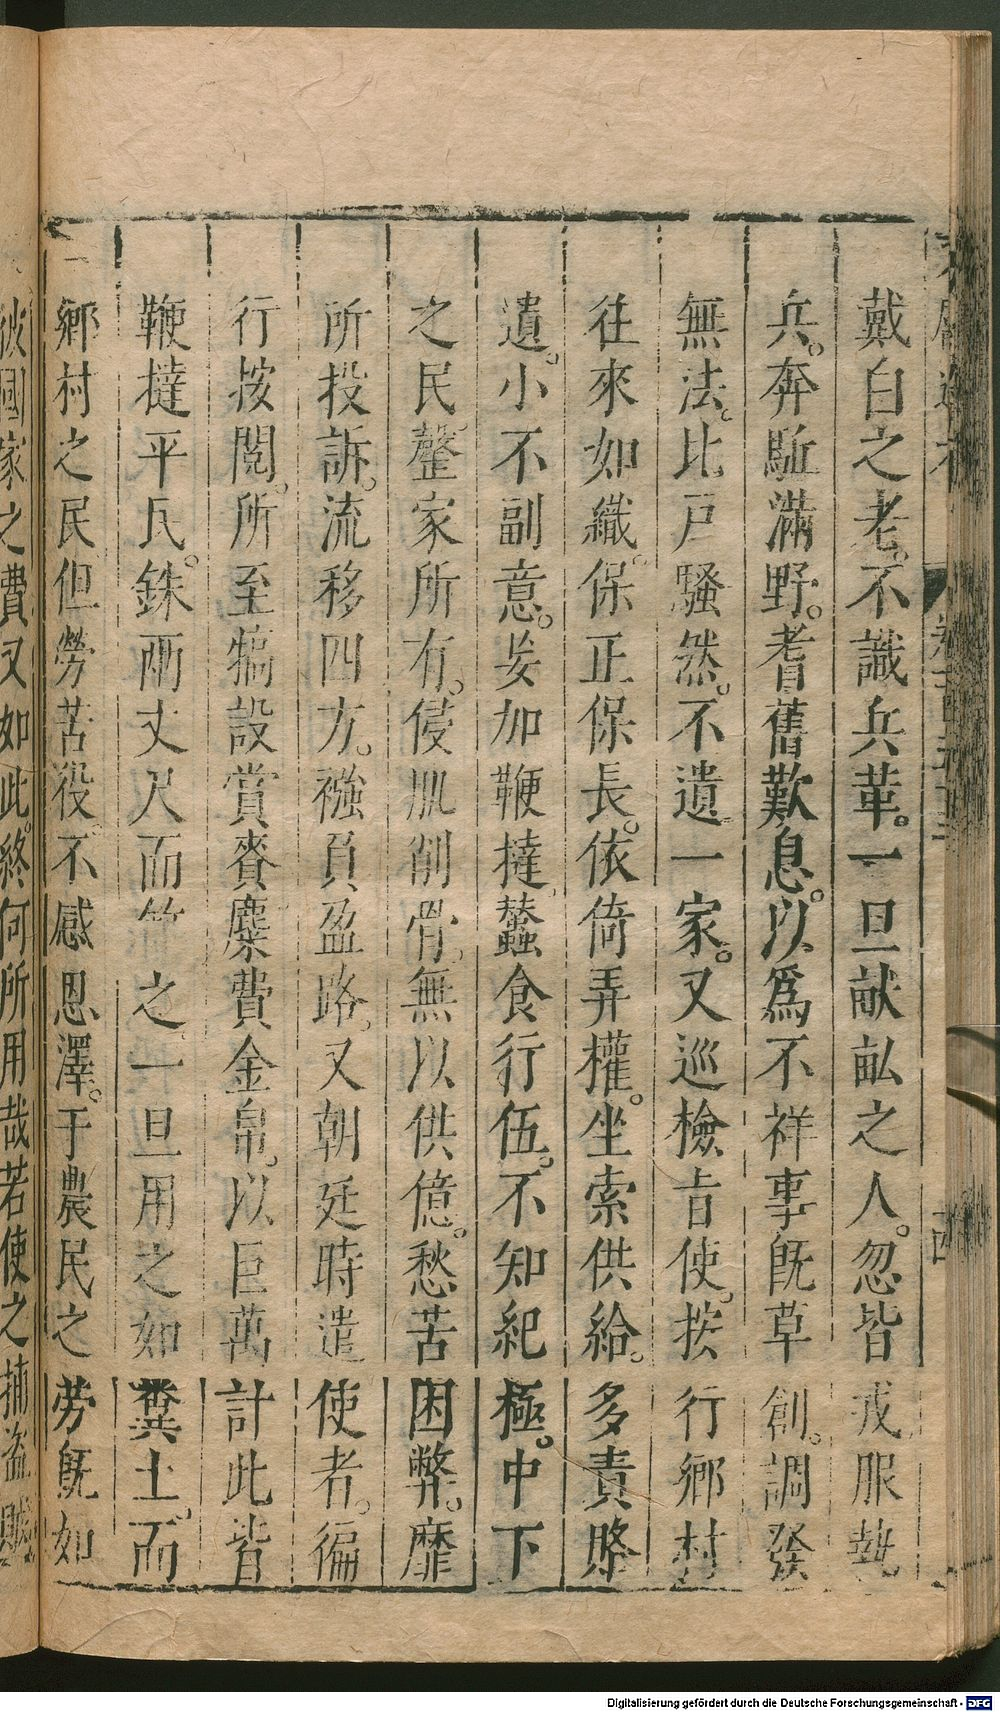 戴白之老。不識兵革。一旦畎畝之人。忽皆戎服執
兵。奔駈滿野。耆舊歎息。以為不祥事旣草創。調發
無法。比戸騷然。不遺一家。又巡檢旨使。按行鄉村
往來如織。保正保長。依倚弄權。坐索供給。多責賂
遺。小不副意。妄加鞭撻。蠶食行伍。不知紀極。中下
之民。罄家所有。侵肌削骨。無以供億。愁苦困弊。靡
所投訴。流移四方。襁負盈路。又朝廷時遣使者。徧
行按閱。所至犒設賞賚。糜費金帛。以巨萬計此皆
鞭撻平民。銖兩丈尺而 之一旦用之如糞土。而
鄉村之民。但勞苦役。不感恩澤。于農民之勞旣如
彼國家之費又如此。終何所用哉若使之捕盗賊
卷
四
Digitalisierung gefördert durch die Deutsche Forschungsgemeinschaft - DFG